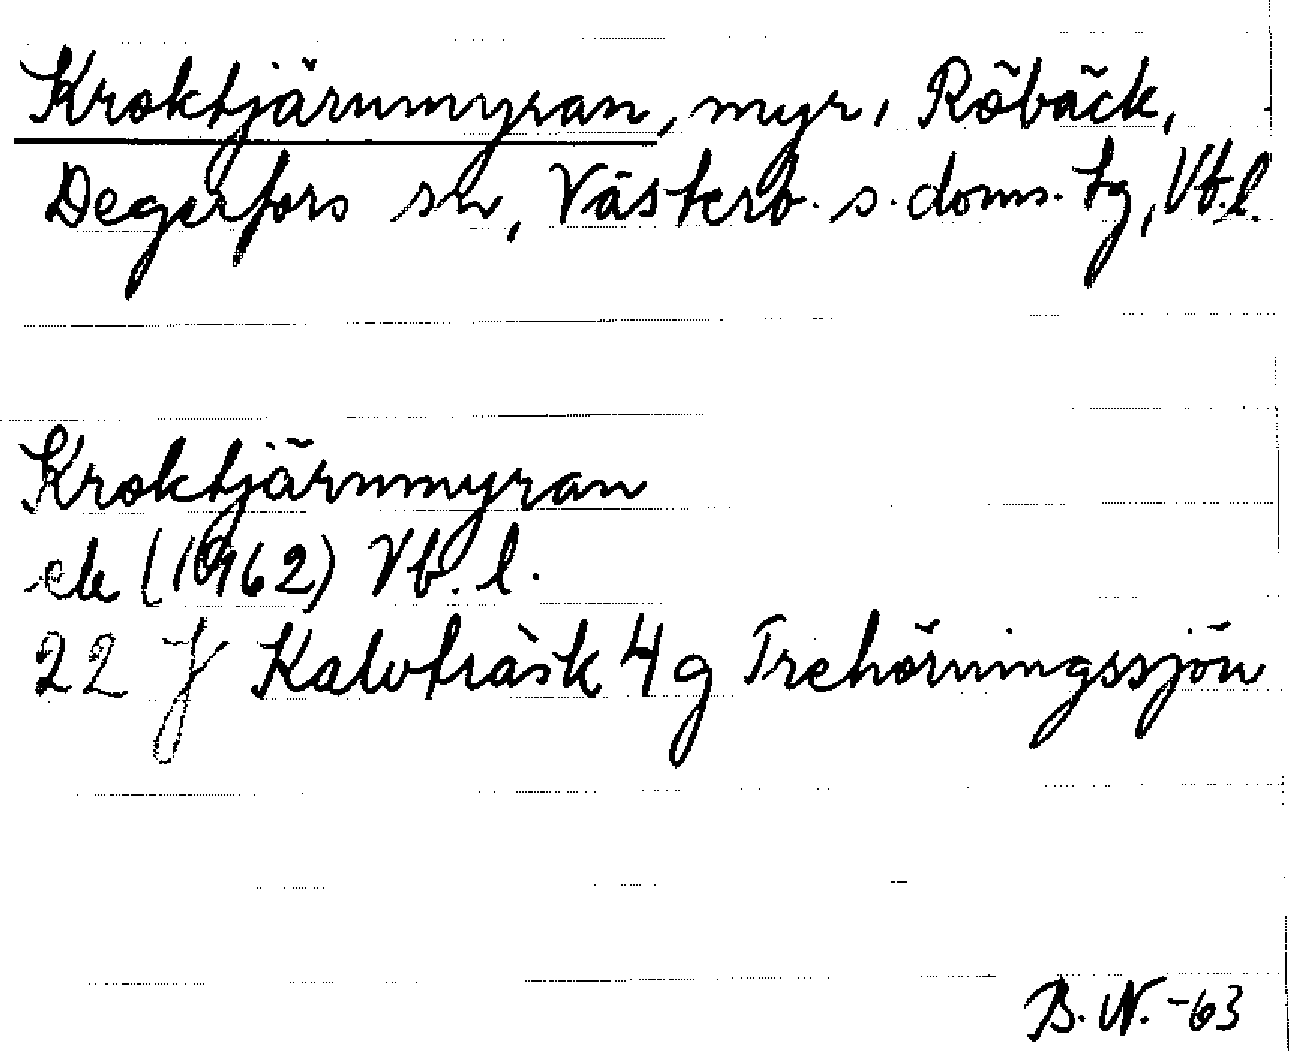 Kroktjärnmyran, myr, Röbäck,
Degerfors sn, Västerb. s. doms. tg, Vb. l.
Kroktjärnmyran
ek (1962) Vb. l.
22 J Kalvträsk 4 g Trehörningssjön
B. N. -63